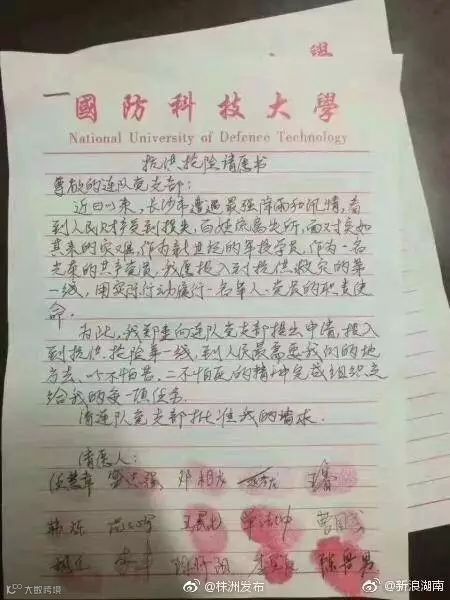 國防科技大學
National University of Defence Technology
抗洪抢险请愿书
尊敬的连队党支部:
近日以来,长沙市遭遇最强降雨和汛情,看
到人民财产受到损失,百姓流离失所,面对突如
其来的灾难,作为新世纪的军校学员,作为一名
光荣的共产党员,我愿投入到抗洪救灾的第
一线,用实际行动履行一名军人、党员的职责使
命。
为此,我郑重向连队党支部提出申请,投入
到抗洪抢险第一线,到人民最需要我们的地
方去,以一不怕苦、二不怕死的精神完成组织交
给我的每一项任务。
请连队党支部批准我的请求。
请愿人:
韩烁
大数跨境
@株洲发布
@新浪湖南